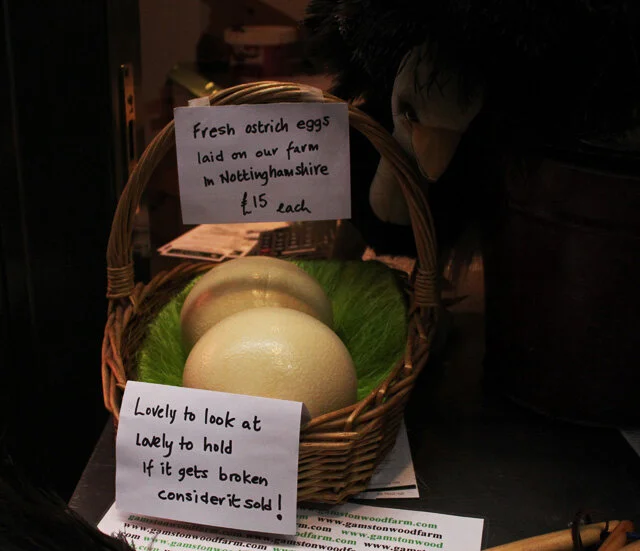 Fresh ostrich eggs
laid on our farm
in Nottinghamshire
£15 each
Lovely to look at
Lovely to hold
If it gets broken
consider it sold!
www.gamstonwoodfarm.com
www.gamstonwoodfarm.com
www.gamstonwood
www.gamstonwoodfarm.com